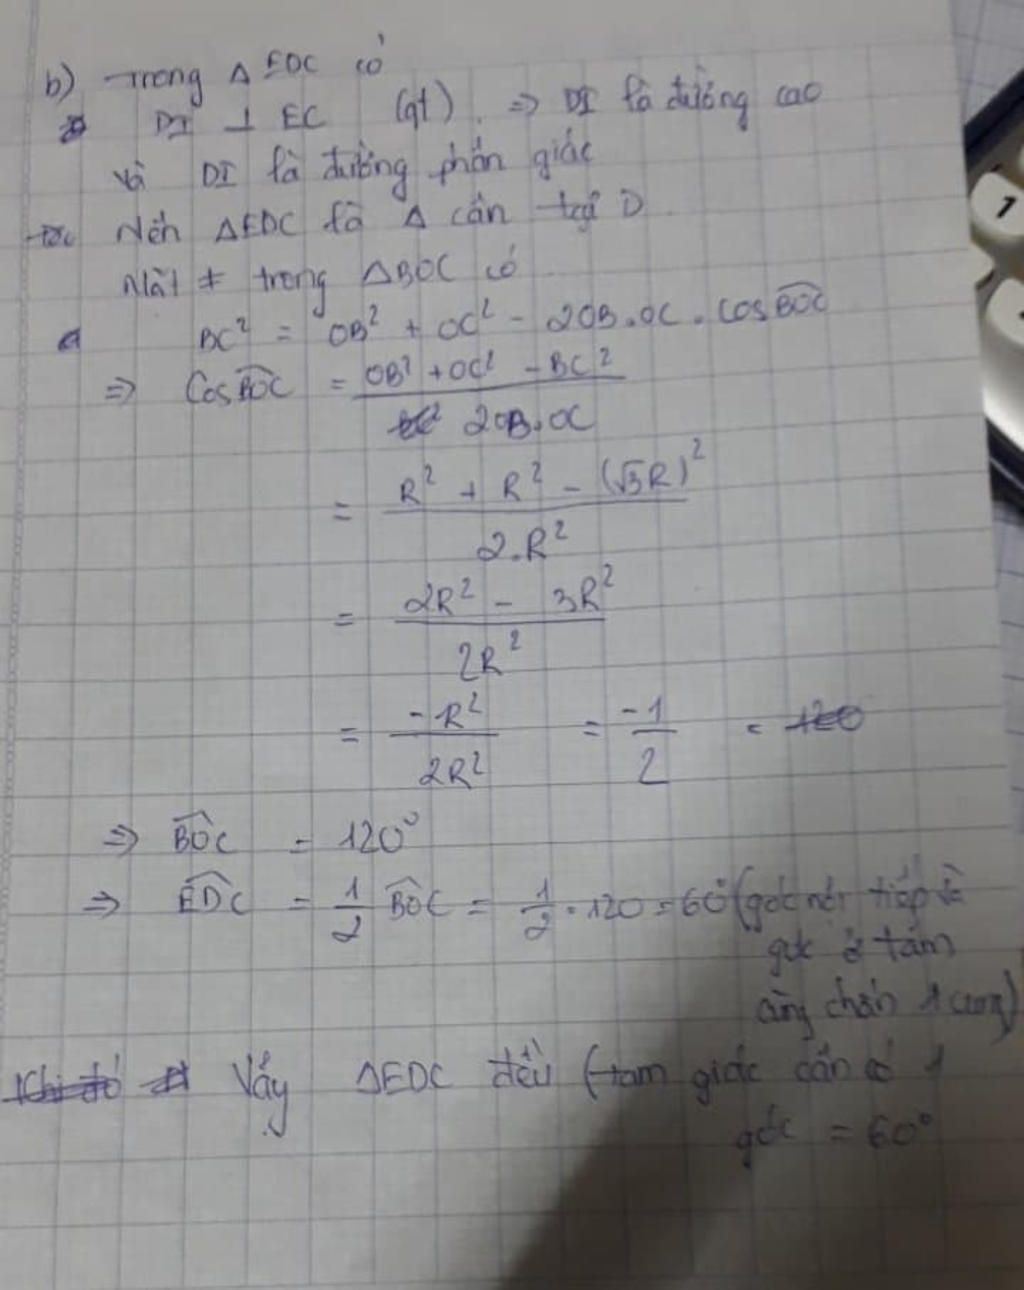 b) Trong Δ EDC có
DI ⊥ EC (gt) ⇒ DI là đường cao
và DI là đường phân giác
Nên ΔEDC là Δ cân tại D
Mặt ≠ trong ΔBOC có
BC² = OB² + OC² - 2OB.OC.CosBOC
⇒ CosBOC = OB² + OC² - BC²
2OB.OC
= R² + R² - (√3R)²
2.R²
= 2R² - 3R²
2R²
= -R² = -1 =
2R² 2
⇒ BOC = 120°
⇒ EDC = 1/2 BOC = 1/2 . 120 = 60° (góc nội tiếp và
góc ở tâm
cùng chắn 1 cung)
Vậy ΔEDC đều (tam giác cân có 1
góc = 60°
1